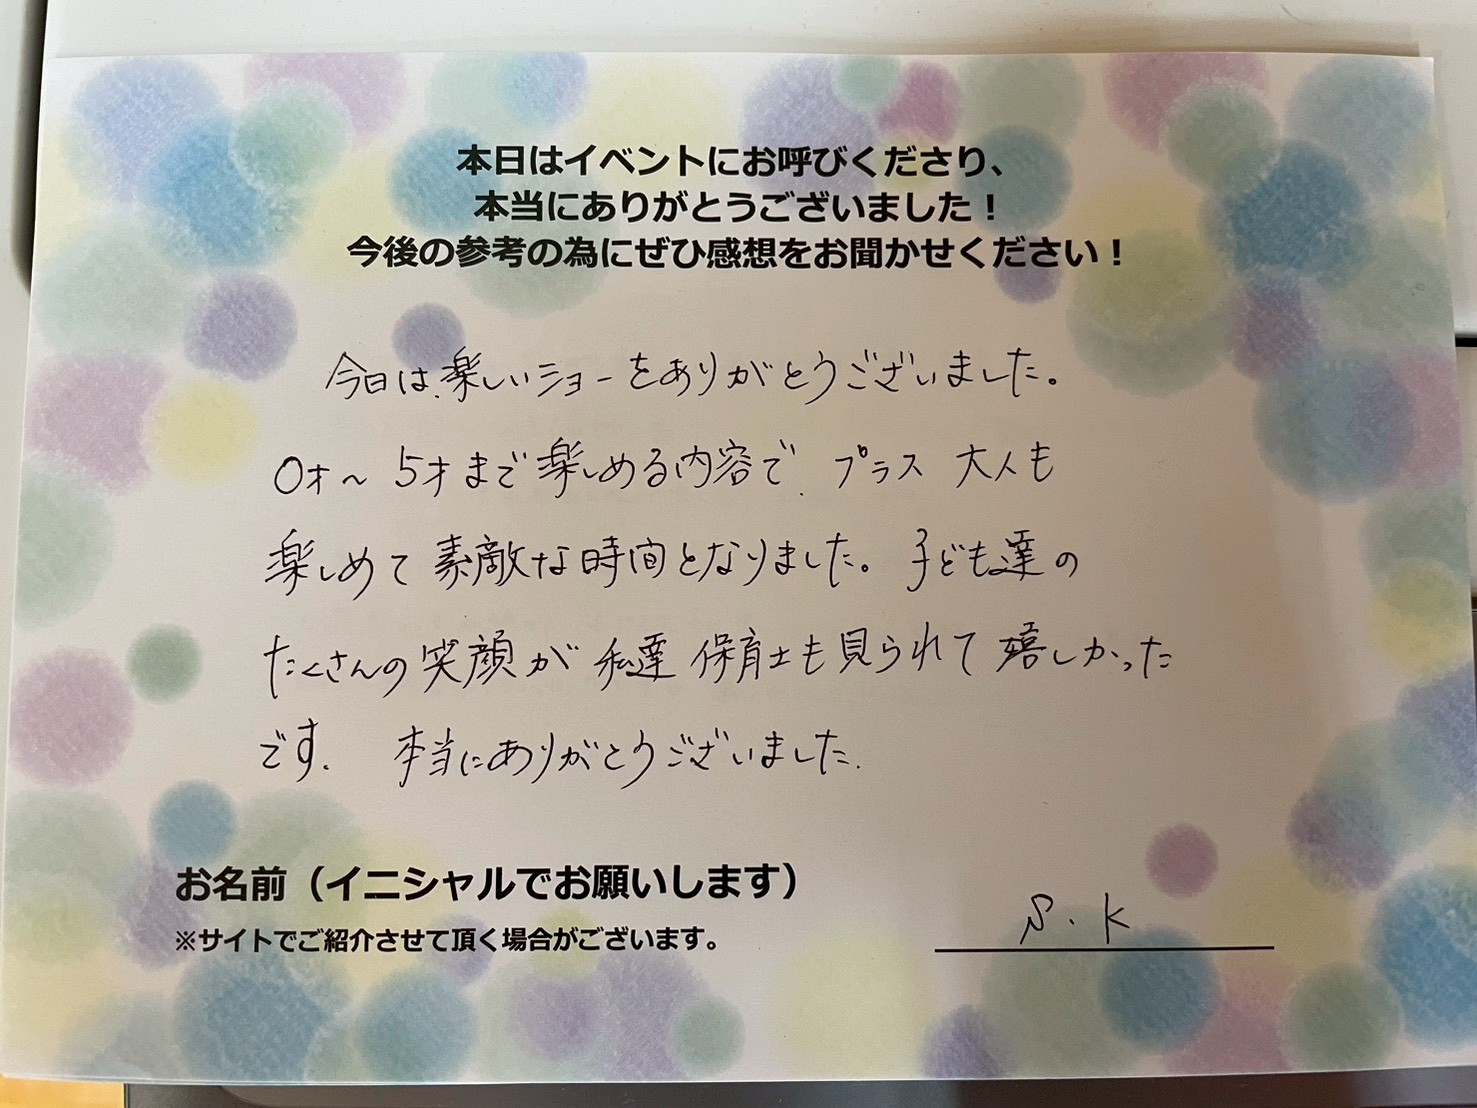 本日はイベントにお呼びくださり、
本当にありがとうございました！
今後の参考の為にぜひ感想をお聞かせください！
今日は、楽しいショーをありがとうございました。
0才〜5才まで楽しめる内容で、プラス 大人も
楽しめて 素敵な時間となりました。子ども達の
たくさんの笑顔が 私達 保育士も見られて 嬉しかった
です。 本当にありがとうございました。
お名前（イニシャルでお願いします）
S.K
※サイトでご紹介させて頂く場合がございます。